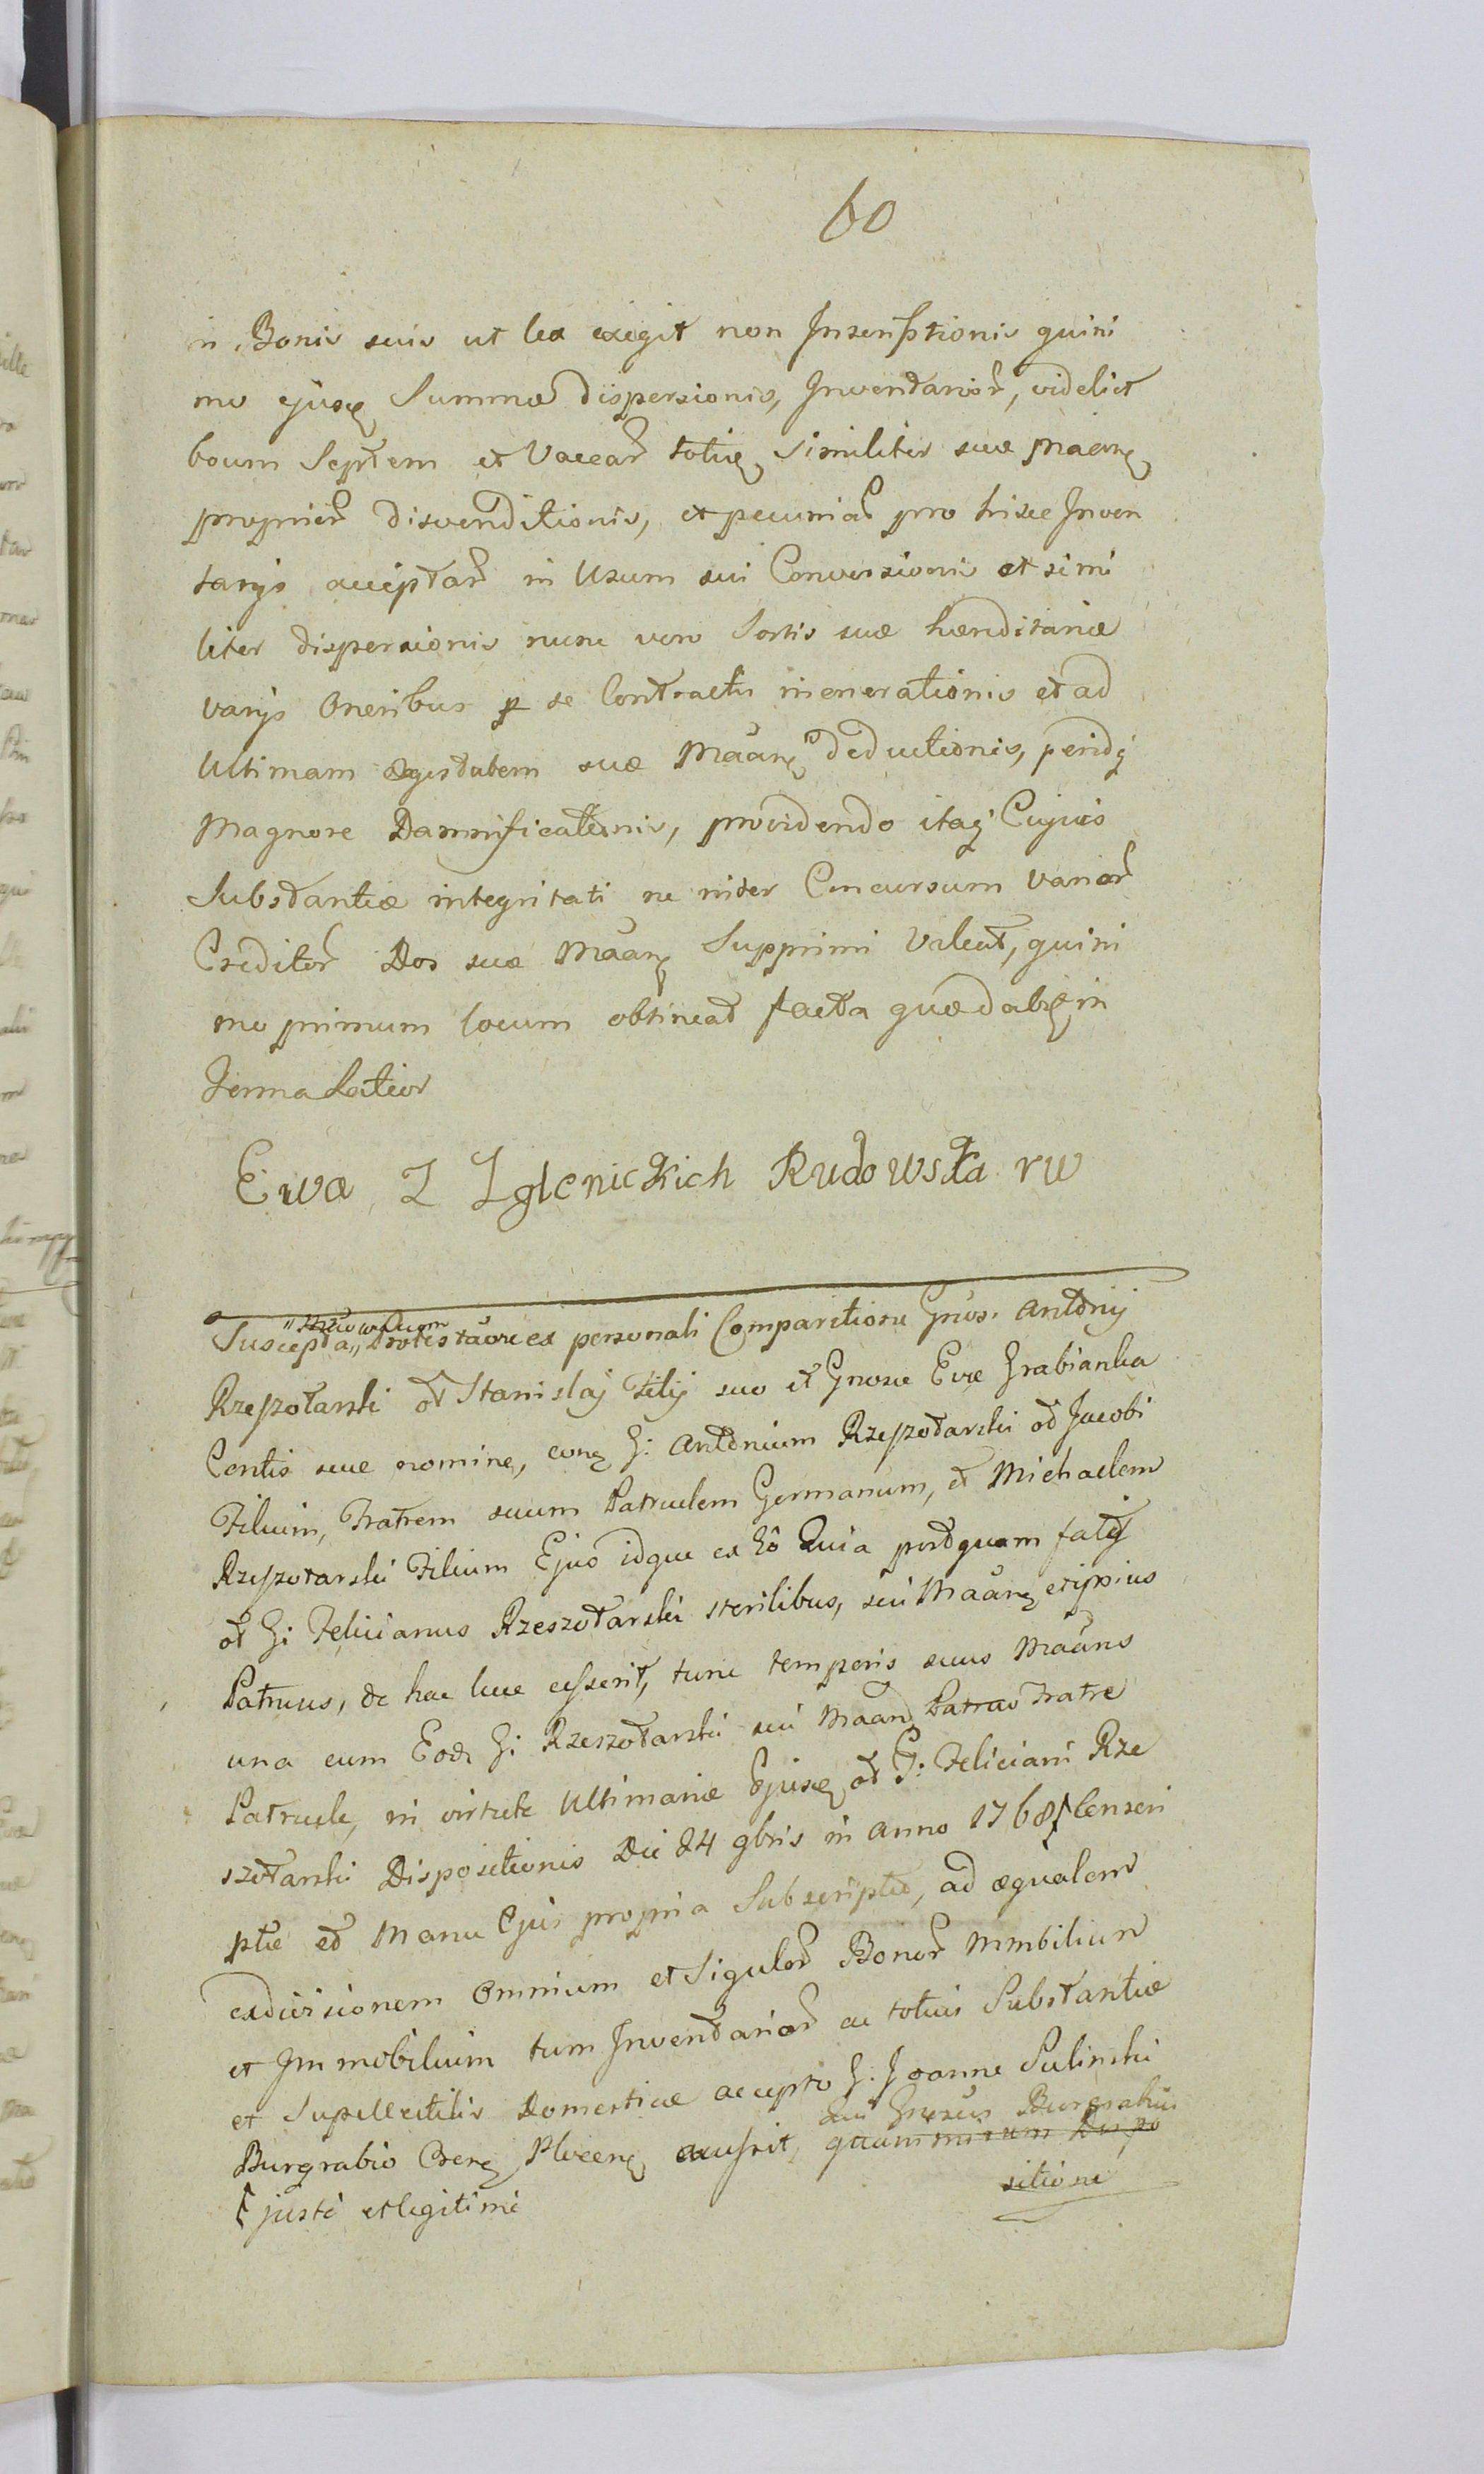 60
in Bonis suis ut lex exigit non Inscriptionis quini
mo ejusq Summæ dispersionis, Inventarior, videlict
boum Septem et Vaccar totiq similiter suæ Maanq
proprier disvenditionis, et pecuniar pro hisce Inven
tarys acceptar in Usum sui Conversionis et simi
liter dispersionis nunc vero Sortis suæ hæreditariæ
varys Oneribus p se Contractis inonerationis et ad
Ultimam ægestatem suæ Maanq deductionis, peridq
Magnore Damnificationis, providendo itaq Cujus
Substantiæ integritati ne inter Concursum varior
Creditor Dos suæ Maanq Supprimi Valeat, quini
mo primum locum obtineat facta quædabq in
Forma Latior
Ewa Z Zglenickich Rudowska rw
Suscepta Protestaõre ex personali Comparitione Gnosi Antonij
Rzeszotarski ot Stanislaj Filij suo et Gnosæ Evæ Grabianka
Contis suæ nomine, conq G: Antonium Rzeszotarski ot Jacobi
Filium, Fratrem suum Patruelem Germanum, et Michaelem
Rzeszotarski Filium Ejus idque ex eo Quia postquam fatq
ot G: Felicianus Rzeszotarski sterilibus, sui Maanq et ipsius
Patruus, de hac luce cesserit, tunc temporis suus Maans
una cum Eod G: Rzeszotarski sui Maanq Patrao Fratre
Patruele, in virtute Ultimariæ Ejusq ot G: Feliciani Rze
szotarski Dispositionis Die 24 gbris in anno 1768 Censeri
ptæ et Manu Ejus propria Subscriptæ, ad æqualem
exdivisionem Omnium et Sigulor Bonor Mmbilium
et Immobilium tum Inventarior ac totius Substantiæ
et Supellectilis Domesticæ accepto G: Joanne Sulinski
qui Burgrabius
Burgrabio Plocenq quam Dispo
sitioni
juste et legitime